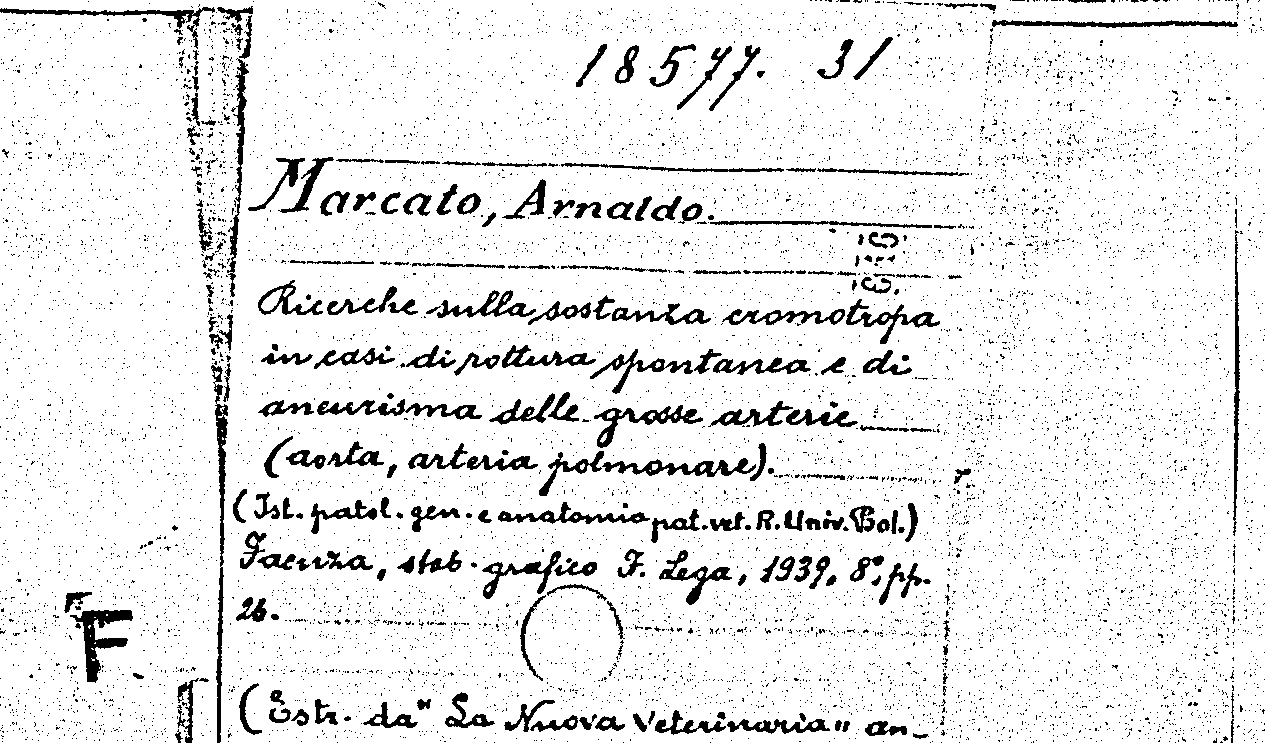 18577. 31
Marcato, Arnaldo.
Ricerche sulla sostanza cromotropa
in casi di rottura spontanea e di
aneurisma delle grosse arterie
(aorta, arteria polmonare).
(Ist. patol. gen. e anatomia pat. vet. R. Univ. Bol.)
Faenza, stab. grafico F. Lega, 1939, 8°, pp.
26.
F
(Estr. da "La Nuova Veterinaria" an-